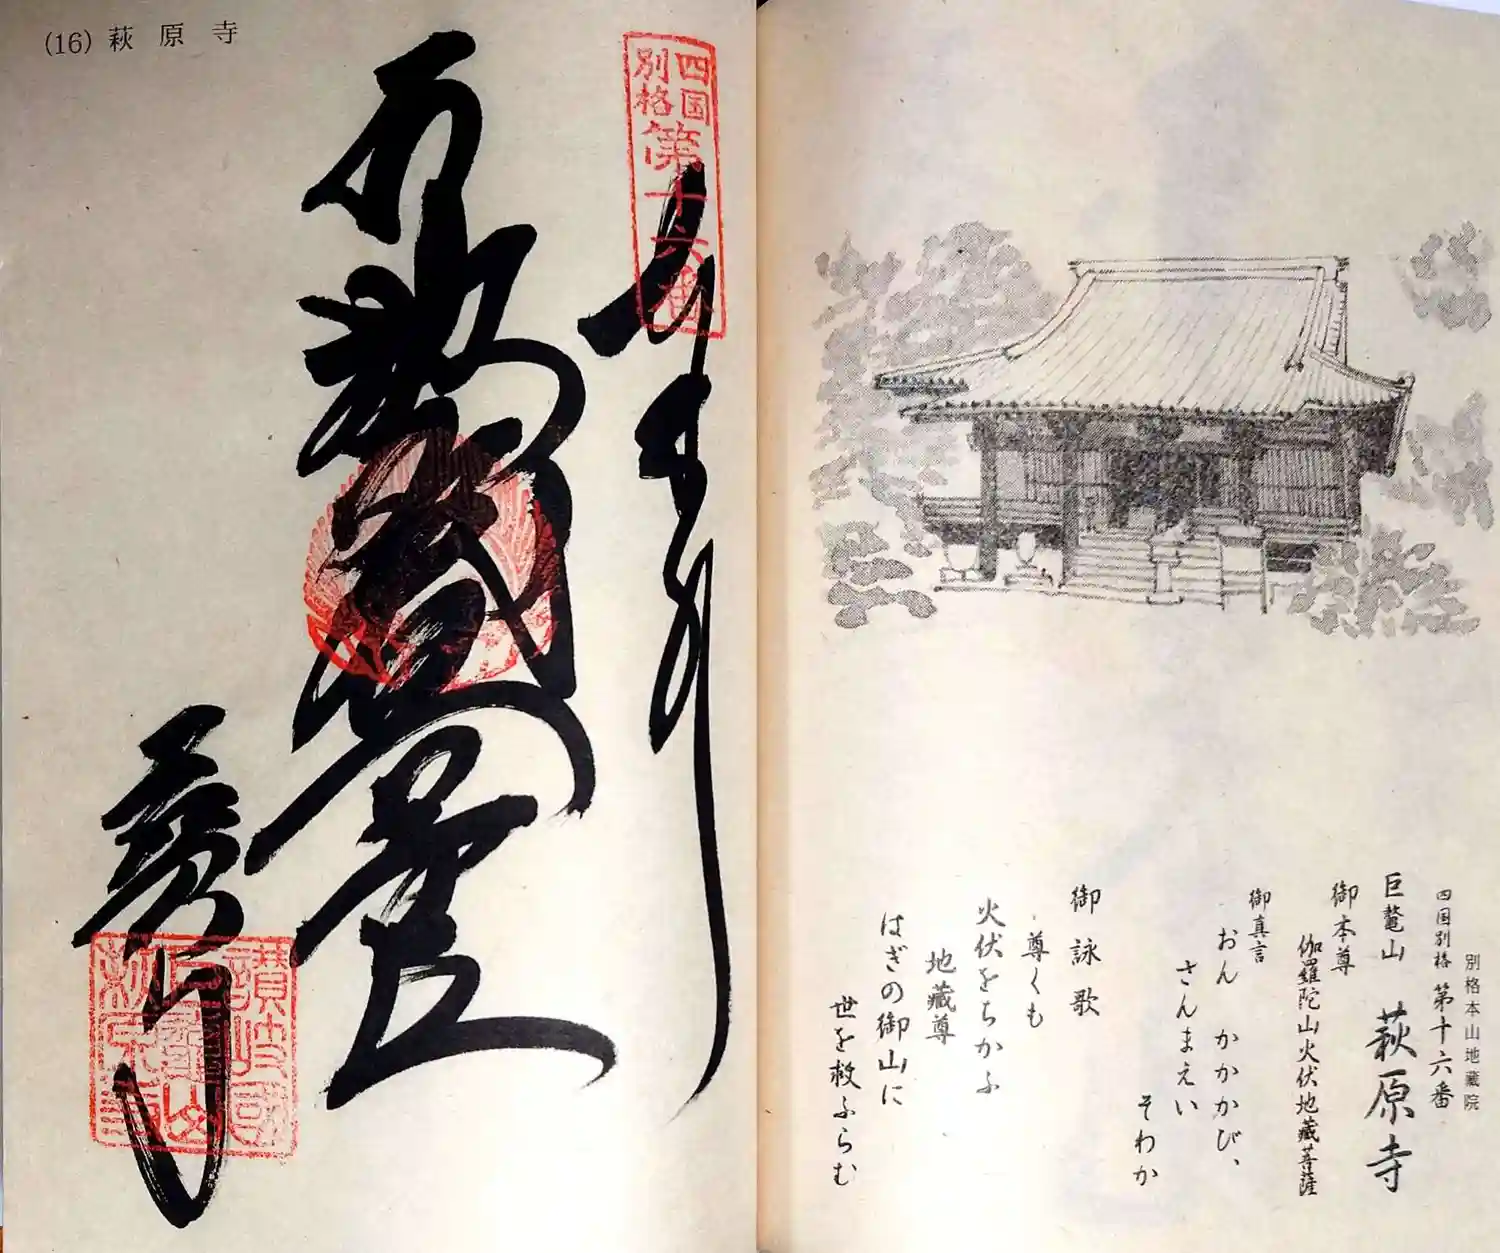 (16) 萩原寺
四国
別格
第十六番
奉拝
萩原寺
別格本山地蔵院
四国別格 第十六番
巨鼇山 萩原寺
御本尊
伽羅陀山火伏地蔵菩薩
御真言
おん かかかび、
さんまえい
そわか
御詠歌
尊くも
火伏をちかふ
地蔵尊
はぎの御山に
世を救ふらむ